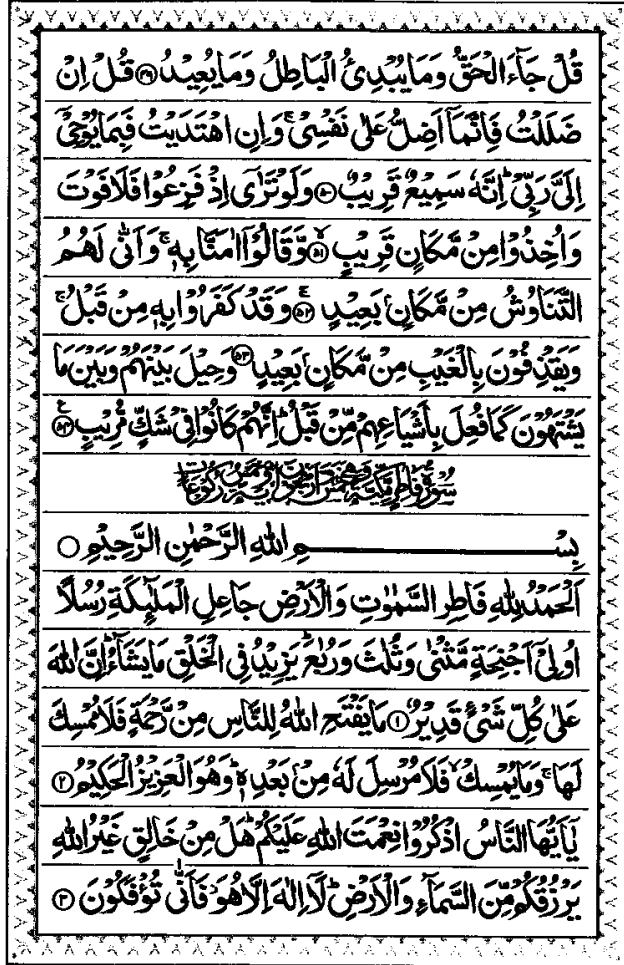 قُلْ جَآءَ الْحَقُّ وَمَا يُبْدِئُ الْبَاطِلُ وَمَا يُعِيْدُ ۝۴۹ قُلْ اِنْ
ضَلَلْتُ فَاِنَّمَآ اَضِلُّ عَلٰى نَفْسِيْ ۚ وَاِنِ اهْتَدَيْتُ فَبِمَا يُوْحِيْٓ
اِلَيَّ رَبِّيْ ؕ اِنَّهٗ سَمِيْعٌ قَرِيْبٌ ۝۵۰ وَلَوْ تَرٰٓى اِذْ فَزِعُوْا فَلَا فَوْتَ
وَاُخِذُوْا مِنْ مَّكَانٍ قَرِيْبٍ ۙ۝۵۱ وَّقَالُوْٓا اٰمَنَّا بِهٖ ۚ وَاَنّٰى لَهُمُ
التَّنَاوُشُ مِنْ مَّكَانٍۭ بَعِيْدٍ ۚ۝۵۲ وَقَدْ كَفَرُوْا بِهٖ مِنْ قَبْلُ ۚ
وَيَقْذِفُوْنَ بِالْغَيْبِ مِنْ مَّكَانٍۭ بَعِيْدٍ ۝۵۳ وَحِيْلَ بَيْنَهُمْ وَبَيْنَ مَا
يَشْتَهُوْنَ كَمَا فُعِلَ بِاَشْيَاعِهِمْ مِّنْ قَبْلُ ؕ اِنَّهُمْ كَانُوْا فِيْ شَكٍّ مُّرِيْبٍ ۝۵۴
سُوْرَةُ فَاطِرٍ مَّكِّيَّةٌ وَّهِيَ خَمْسٌ وَّاَرْبَعُوْنَ اٰيَةً وَّخَمْسُ رُكُوْعَاتٍ
بِسْمِ اللهِ الرَّحْمٰنِ الرَّحِيْمِ ۝
اَلْحَمْدُ لِلّٰهِ فَاطِرِ السَّمٰوٰتِ وَالْاَرْضِ جَاعِلِ الْمَلٰٓئِكَةِ رُسُلًا
اُولِيْٓ اَجْنِحَةٍ مَّثْنٰى وَثُلٰثَ وَرُبٰعَ ؕ يَزِيْدُ فِي الْخَلْقِ مَا يَشَآءُ ؕ اِنَّ اللهَ
عَلٰى كُلِّ شَيْءٍ قَدِيْرٌ ۝۱ مَا يَفْتَحِ اللهُ لِلنَّاسِ مِنْ رَّحْمَةٍ فَلَا مُمْسِكَ
لَهَا ۚ وَمَا يُمْسِكْ ۙ فَلَا مُرْسِلَ لَهٗ مِنْۢ بَعْدِهٖ ؕ وَهُوَ الْعَزِيْزُ الْحَكِيْمُ ۝۲
يٰٓاَيُّهَا النَّاسُ اذْكُرُوْا نِعْمَتَ اللهِ عَلَيْكُمْ ؕ هَلْ مِنْ خَالِقٍ غَيْرُ اللهِ
يَرْزُقُكُمْ مِّنَ السَّمَآءِ وَالْاَرْضِ ؕ لَآ اِلٰهَ اِلَّا هُوَ ۖ فَاَنّٰى تُؤْفَكُوْنَ ۝۳